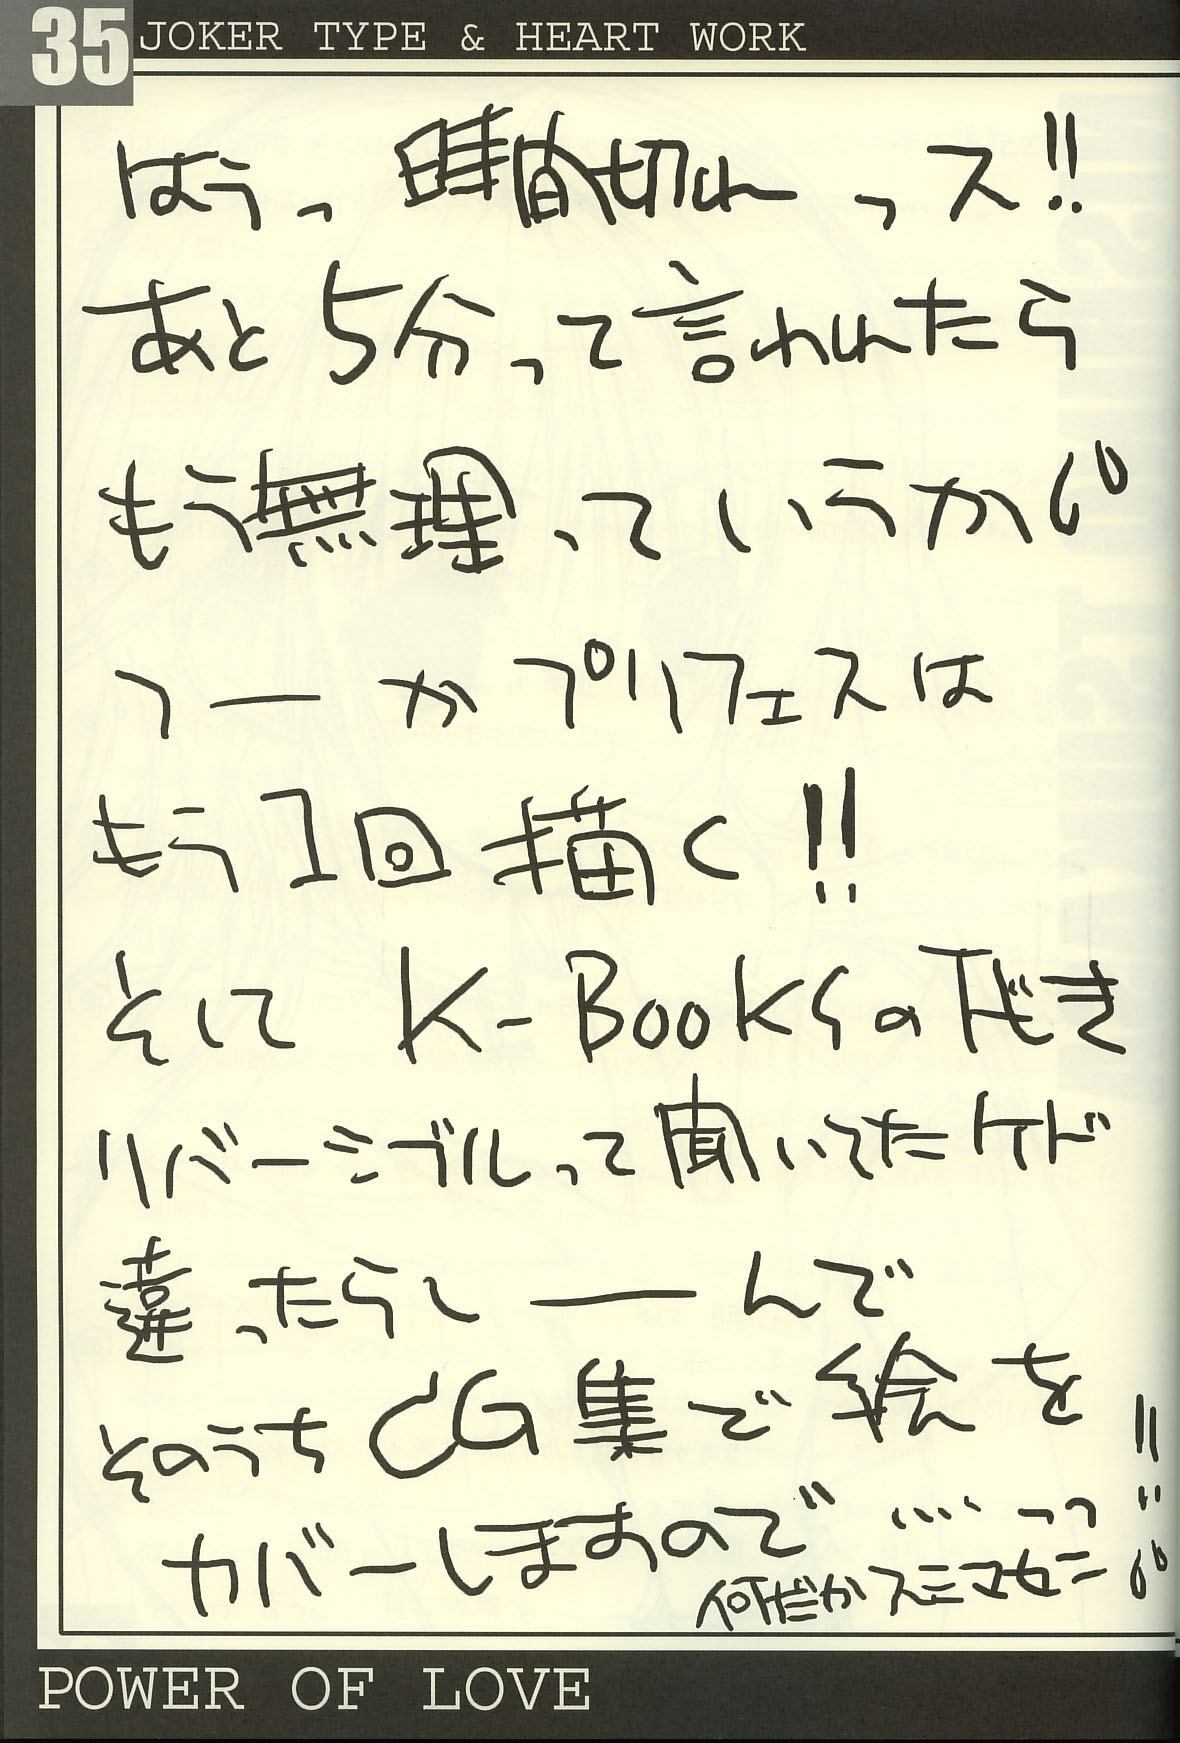 35 JOKER TYPE & HEART WORK
はうっ 時間切れ ーっス!!
あと5分って言われたら
もう無理っていうか
つーかプリフェスは
もう1回描く!!
そして K-BOOKSの下だき
リバーシブルって聞いてたケド
違ったらしーんで
そのうちCG集で絵を
カバーしますので
何だかスミマセン
POWER OF LOVE